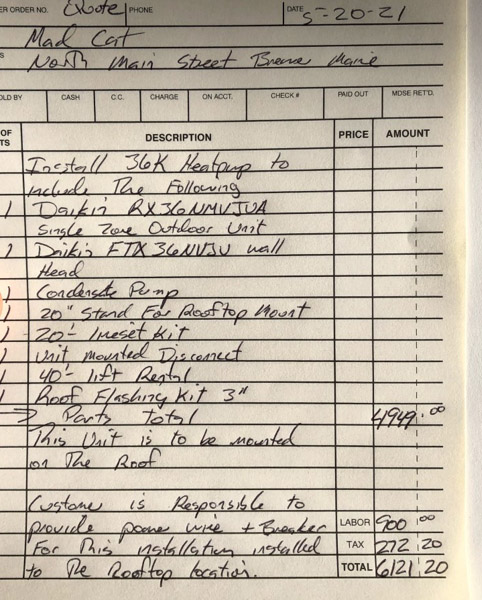 ER ORDER NO. Quote PHONE DATE 5-20-21
Mad Cat
North Main Street Brewer Maine
OLD BY CASH C.C. CHARGE ON ACCT. CHECK # PAID OUT MDSE RET'D.
OF
TS DESCRIPTION PRICE AMOUNT
Install 36K Heatpump to
include The Following
1 Daikin RX36NMVJUA
Single Zone Outdoor Unit
1 Daikin FTX36NVJU wall
Head
1 Condensate Pump
1 20" Stand For Rooftop Mount
1 20'- lineset Kit
1 Unit mounted Disconnect
1 40'- lift Rental
1 Roof Flashing Kit 3"
→ Parts Total 4949.00
This Unit is to be mounted
on The Roof
Customer is Responsible to
provide power wire + Breaker LABOR 900 00
For This installation installed TAX 272 20
to The Rooftop location. TOTAL 6121 20